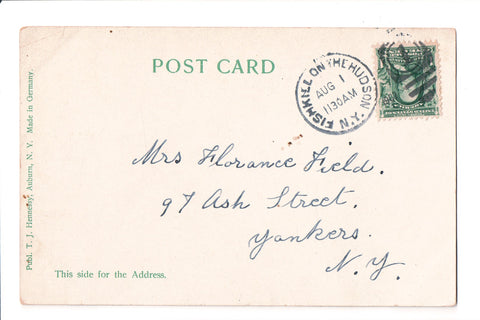 POST CARD
FISHKILL ON THE HUDSON N.Y.
AUG 1
1130AM
Mrs Florance Field.
97 Ash Street.
Yonkers.
N. Y.
This side for the Address.
Publ. T. J. Hennesy, Auburn, N. Y. Made in Germany.